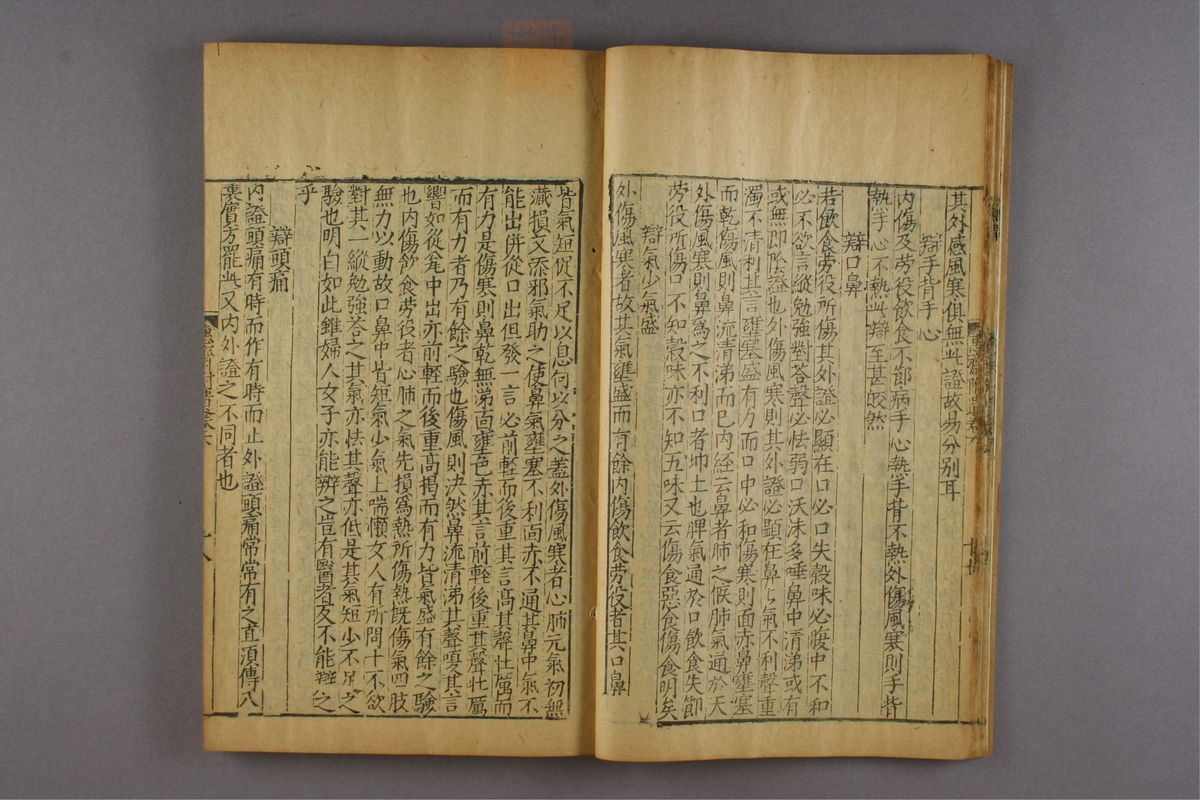 其外感風寒俱無此證故易分別耳
辯手背手心
内傷及劳役飲食不節病手心熱手背不熱外傷風寒則手背
熱手心不熱此辯至甚皎然
辯口鼻
若飲食劳役所傷其外證必顯在口必口失穀味必腹中不和
必不欲言縱勉強對荅聲必怯弱口沃沫多唾鼻中清涕或有
或無即陰證也外傷風寒則其外證必顯在鼻鼻氣不利聲重
濁不清利其言壅塞盛有力而口中必和傷寒則面赤鼻壅塞
而乾傷風則鼻流清涕而已内經云鼻者肺之候肺氣通於天
外傷風寒則鼻爲之不利口者坤土也脾氣通於口飲食失節
劳役所傷口不知穀味亦不知五味又云傷食惡食傷食明矣
辯氣少氣盛
外傷風寒者故其氣壅盛而有餘内傷飲食劳役者其口鼻
皆氣短促不足以息何以分之蓋外傷風寒者心肺元氣初無
减損又添邪氣助之使鼻氣壅塞不利面赤不通其鼻中氣不
能出併從口出但發一言必前輕而後重其言高其聲壮厲而
有力是傷寒則鼻乾無涕面壅色赤其言前輕後重其聲壮厲
而有力者乃有餘之驗也傷風則决然鼻流清涕其聲嗄其言
響如從瓮中出亦前輕而後重高揭而有力皆氣盛有餘之驗
也内傷飲食劳役者心肺之氣先損爲熱所傷熱既傷氣四肢
無力以動故口鼻中皆短氣少氣上喘懶女人有所問十不欲
對其一縱勉強荅之其氣亦怯其聲亦低是其氣短少不足之
驗也明白如此雖婦人女子亦能辨之豈有醫者反不能辯之
乎
辯頭痛
内證頭痛有時而作有時而止外證頭痛常常有之直湏傳入
裏實方罷此又内外證之不同者也